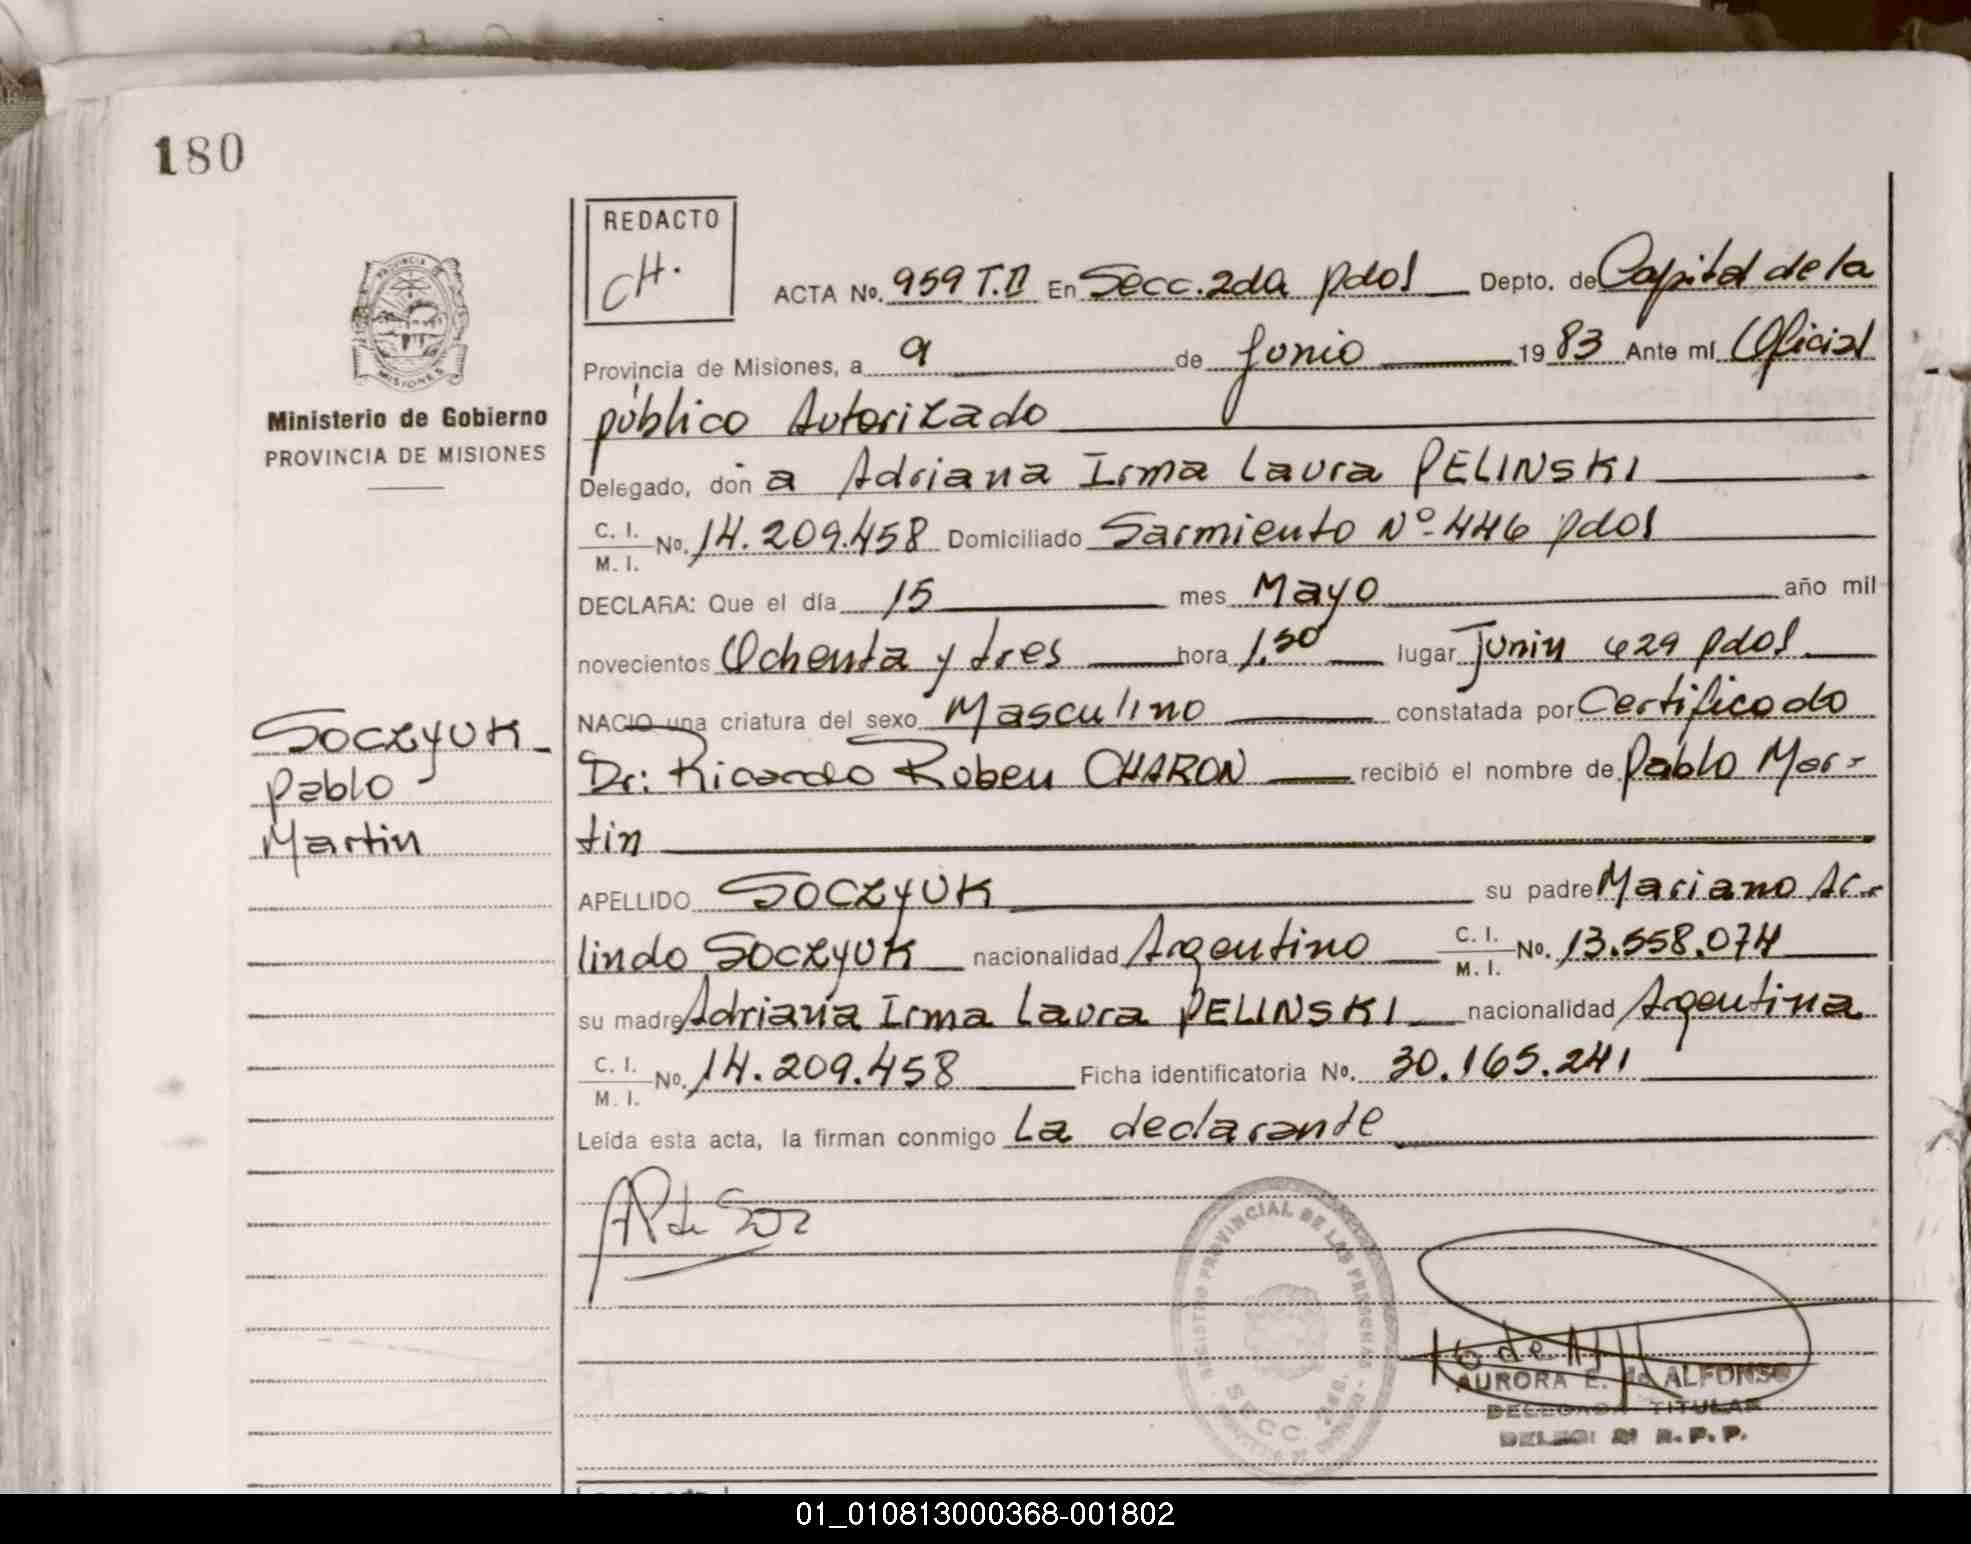 180
REDACTO
CH.
ACTA No. 959 T.II En Secc. 2da pdos Depto. de Capital de la
Provincia de Misiones, a 9 de Junio 1983 Ante mí Oficial
público Autorizado
Delegado, don a Adriana Irma Laura PELINSKI
C. I.
M. I. No. 14.209.458 Domiciliado Sarmiento Nº 446 pdos
DECLARA: Que el día 15 mes Mayo año mil
novecientos Ochenta y tres hora lugar Junin 629 pdos.
NACIO una criatura del sexo Masculino constatada por Certificado
Dr: Ricardo Ruben CHARON recibió el nombre de Pablo Mar-
tin
APELLIDO SOCZYUK su padre Mariano Ar-
lindo SOCZYUK nacionalidad Argentino C. I.
M. I. No. 13.558.074
su madre Adriana Irma Laura PELINSKI nacionalidad Argentina
C. I.
M. I. No. 14.209.458 Ficha identificatoria No. 30.165.241
Leída esta acta, la firman conmigo La declarante
PROVINCIA DE
MISIONES
Ministerio de Gobierno
PROVINCIA DE MISIONES
SOCZYUK
Pablo
Martin
REGISTRO PROVINCIAL DE LAS PERSONAS
SECC.
AURORA E. de ALFONSO
DELEGADA TITULAR
R. P. P.
01_010813000368-001802